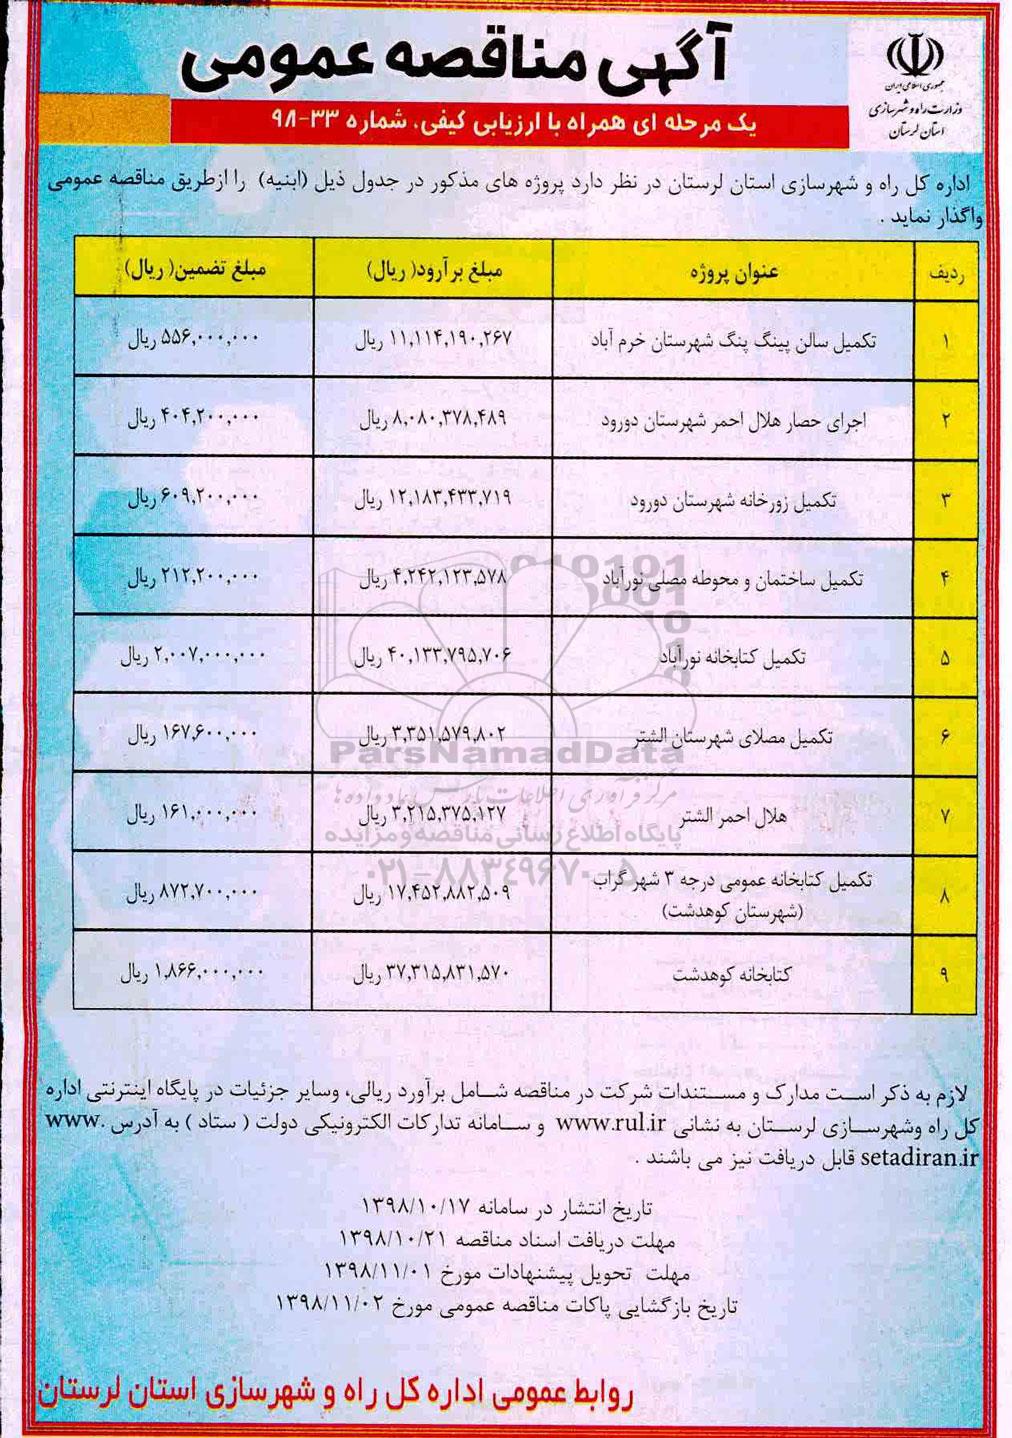 جمهوری اسلامی ایران
وزارت راه و شهرسازی
استان لرستان
آگهی مناقصه عمومی
یک مرحله ای همراه با ارزیابی کیفی، شماره ۳۳-۹۸
اداره کل راه و شهرسازی استان لرستان در نظر دارد پروژه های مذکور در جدول ذیل (ابنیه) را ازطریق مناقصه عمومی
واگذار نماید .
ردیف عنوان پروژه مبلغ برآرود( ریال) مبلغ تضمین( ریال)
۱ تکمیل سالن پینگ پنگ شهرستان خرم آباد ۱۱,۱۱۴,۱۹۰,۲۶۷ ریال ۵۵۶,۰۰۰,۰۰۰ ریال
۲ اجرای حصار هلال احمر شهرستان دورود ۸,۰۸۰,۳۷۸,۴۸۹ ریال ۴۰۴,۲۰۰,۰۰۰ ریال
۳ تکمیل زورخانه شهرستان دورود ۱۲,۱۸۳,۴۳۳,۷۱۹ ریال ۶۰۹,۲۰۰,۰۰۰ ریال
۴ تکمیل ساختمان و محوطه مصلی نورآباد ۴,۲۴۲,۱۲۳,۵۷۸ ریال ۲۱۲,۲۰۰,۰۰۰ ریال
۵ تکمیل کتابخانه نورآباد ۴۰,۱۳۳,۷۹۵,۷۰۶ ریال ۲,۰۰۷,۰۰۰,۰۰۰ ریال
۶ تکمیل مصلای شهرستان الشتر ۳,۳۵۱,۵۷۹,۸۰۲ ریال ۱۶۷,۶۰۰,۰۰۰ ریال
۷ هلال احمر الشتر ۳,۲۱۵,۳۷۵,۱۲۷ ریال ۱۶۱,۰۰۰,۰۰۰ ریال
۸ تکمیل کتابخانه عمومی درجه ۳ شهر گراب
(شهرستان کوهدشت) ۱۷,۴۵۲,۸۸۲,۵۰۹ ریال ۸۷۲,۷۰۰,۰۰۰ ریال
۹ کتابخانه کوهدشت ۳۷,۳۱۵,۸۳۱,۵۷۰ ریال ۱,۸۶۶,۰۰۰,۰۰۰ ریال
ParsNamadData
مرکز فرآوری اطلاعات پارس نماد داده ها
پایگاه اطلاع رسانی مناقصه و مزایده
۰۲۱-۸۸۳۴۹۶۷۰-۵
لازم به ذکر است مدارک و مستندات شرکت در مناقصه شامل برآورد ریالی، وسایر جزئیات در پایگاه اینترنتی اداره
کل راه وشهرسازی لرستان به نشانی www.rul.ir و سامانه تدارکات الکترونیکی دولت ( ستاد ) به آدرس www.
setadiran.ir قابل دریافت نیز می باشند .
تاریخ انتشار در سامانه ۱۳۹۸/۱۰/۱۷
مهلت دریافت اسناد مناقصه ۱۳۹۸/۱۰/۲۱
مهلت تحویل پیشنهادات مورخ ۱۳۹۸/۱۱/۰۱
تاریخ بازگشایی پاکات مناقصه عمومی مورخ ۱۳۹۸/۱۱/۰۲
روابط عمومی اداره کل راه و شهرسازی استان لرستان